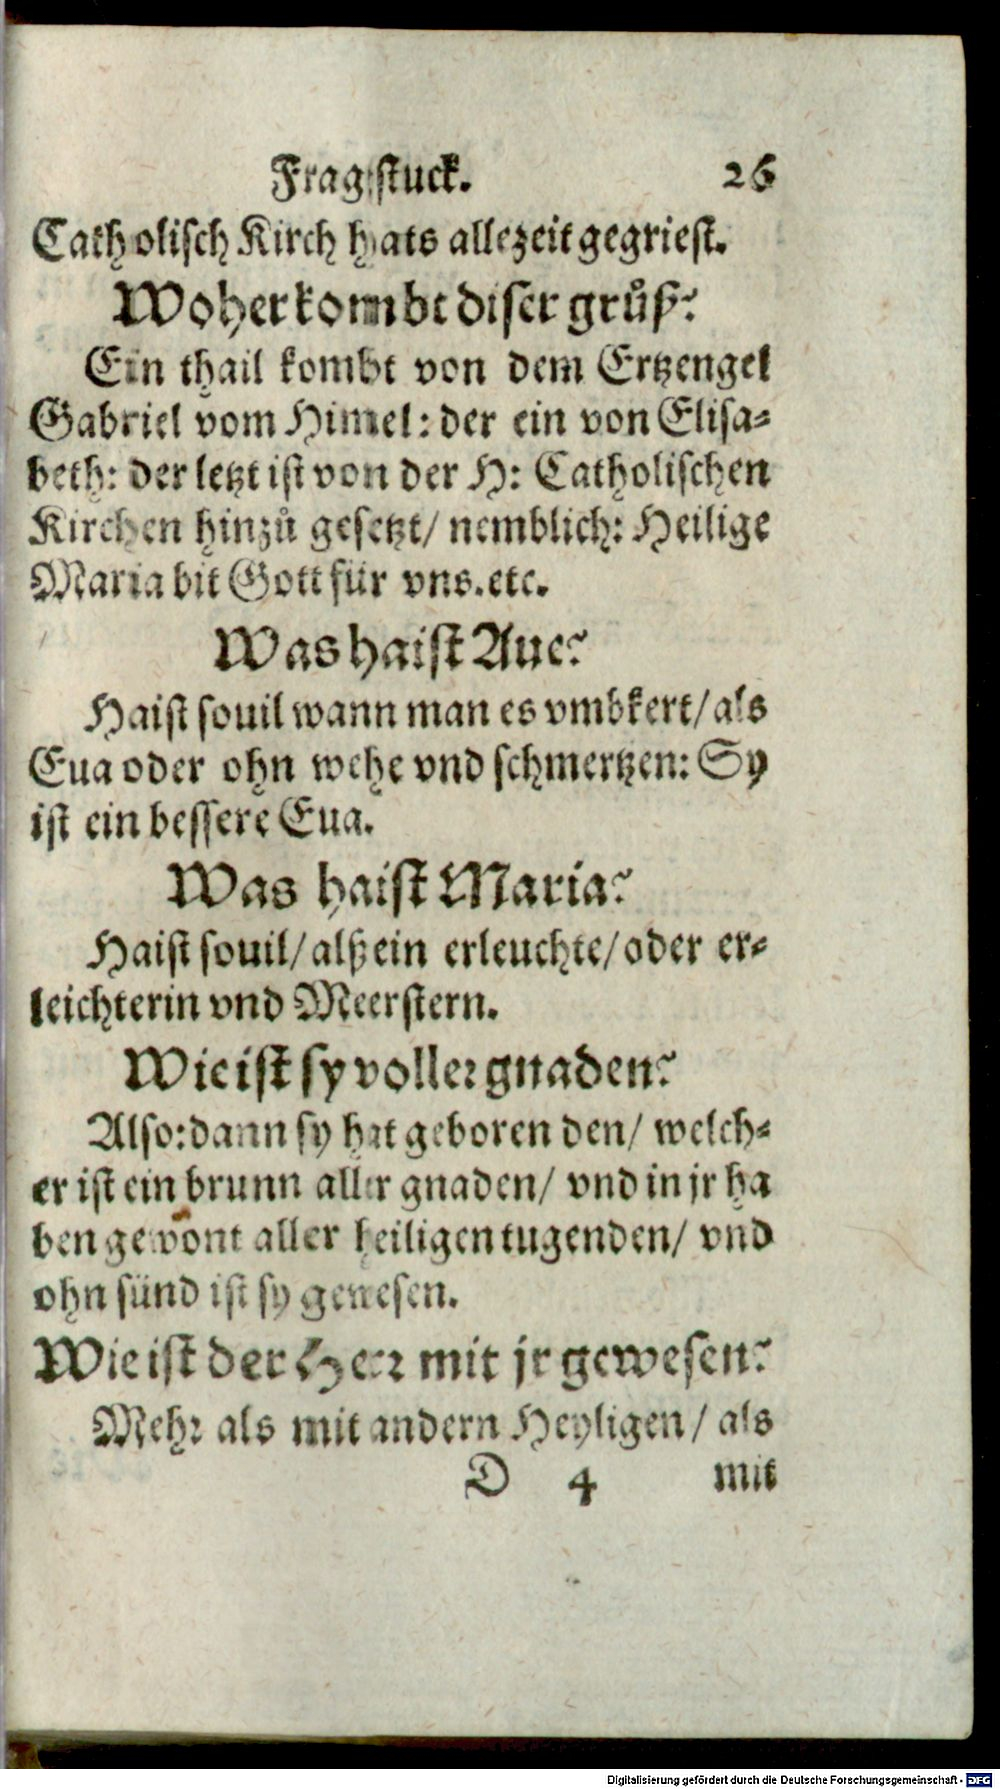 Fragstuck. 26
Catholisch Kirch hats allezeit gegriest.
Woher kombt diser grůß?
Ein thail kombt von dem Ertzengel
Gabriel vom Himel: der ein von Elisa-
beth: der letzt ist von der H: Catholischen
Kirchen hinzů gesetzt/ nemblich: Heilige
Maria bit Gott für vns. etc.
Was haist Aue?
Haist souil wann man es vmbkert/ als
Eua oder ohn wehe vnd schmertzen: Sy
ist ein bessere Eua.
Was haist Maria?
Haist souil/ alß ein erleuchte/ oder er-
leichterin vnd Meerstern.
Wie ist sy voller gnaden?
Also: dann sy hat geboren den/ welch-
er ist ein brunn aller gnaden/ vnd in jr ha
ben gewont aller heiligen tugenden/ vnd
ohn sünd ist sy gewesen.
Wie ist der Herr mit jr gewesen?
Mehr als mit andern Heyligen/ als
D 4 mit
Digitalisierung gefördert durch die Deutsche Forschungsgemeinschaft - DFG